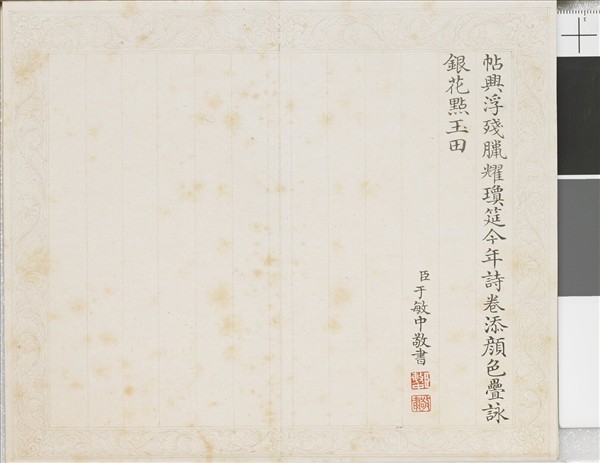 帖興浮殘臘耀瓊筵今年詩卷添顏色疊詠
銀花點玉田
臣于敏中敬書